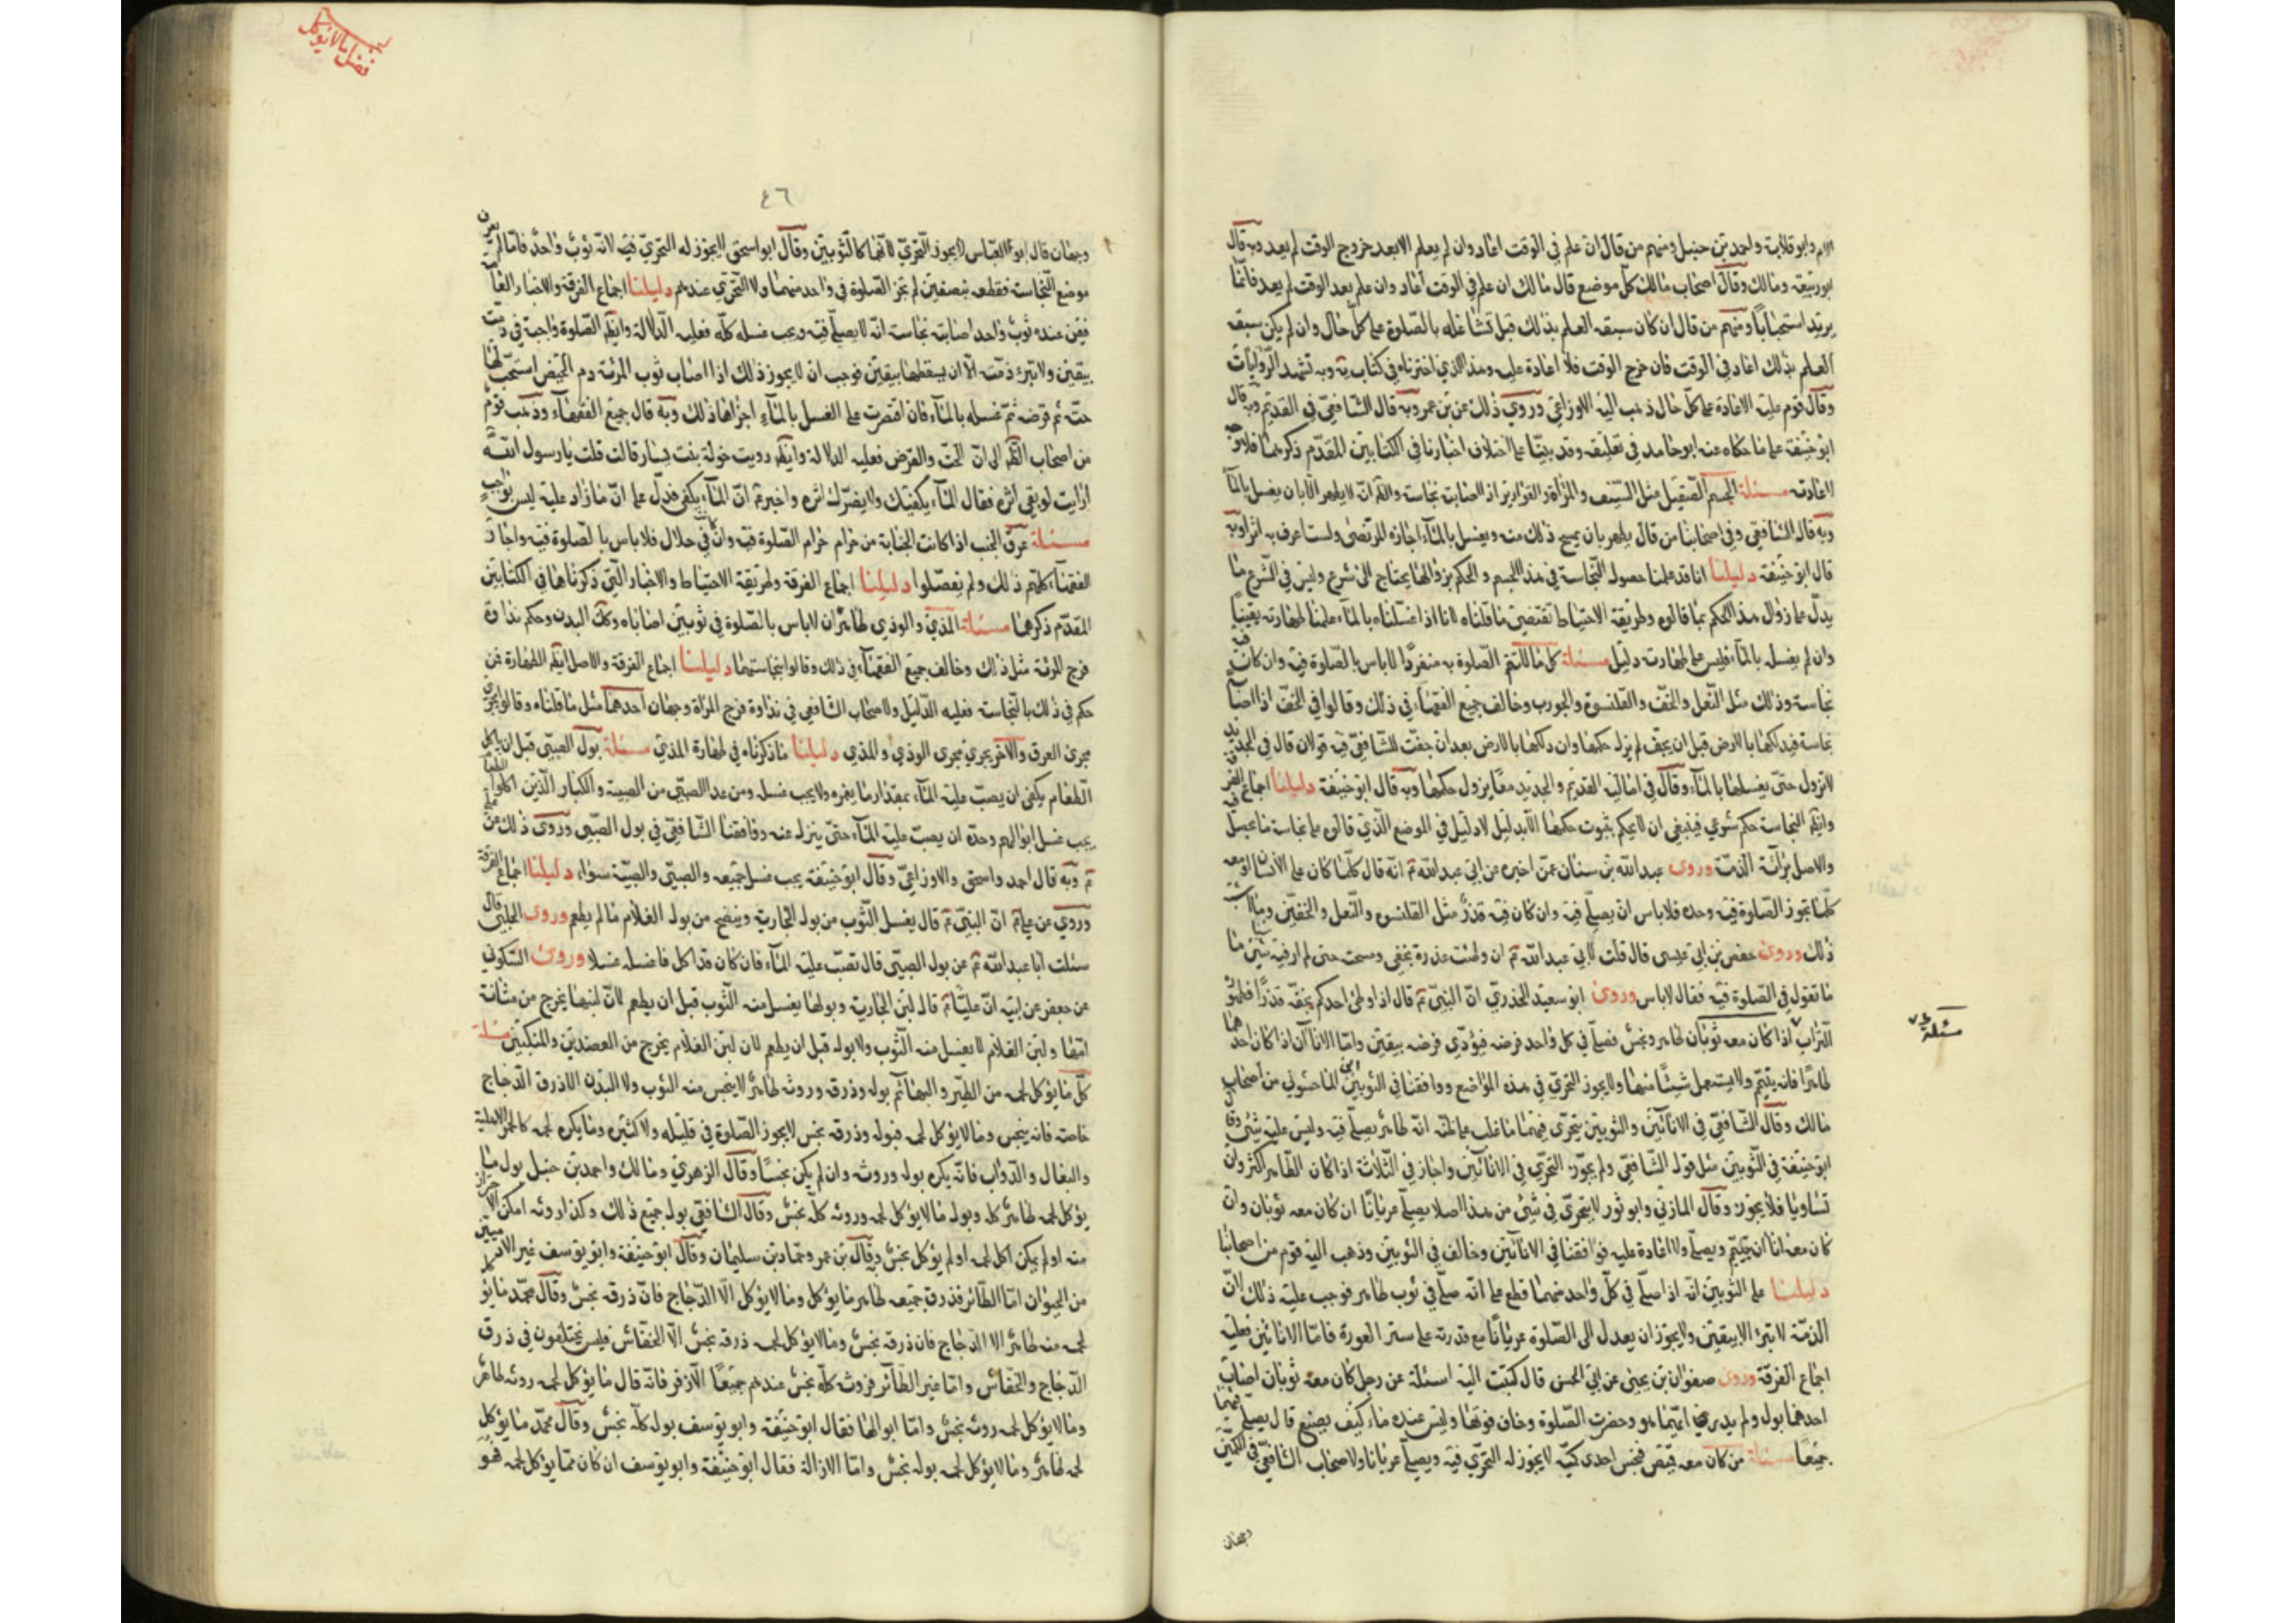 وابو قلابة واحمد بن حنبل ومنهم من قال ان علم في الوقت اعاد وان لم يعلم الا بعد خروج الوقت لم يعد وبه قال
ومالك وقال اصحاب مالك كل موضع قال مالك ان علم في الوقت اعاد وان علم بعد الوقت لم يعد فانما
يريد استحبابا ومنهم من قال ان كان سبقه العلم بذلك قبل تشاغله بالصلوة على كل حال وان لم يكن سبقه
العلم بذلك اعاد في الوقت فان خرج الوقت فلا اعادة عليه وهذا الذي اخترناه في كتاب يه وبه تشهد الروايات
وقال قوم عليه الاعادة على كل حال ذهب اليه الاوزاعي وروي ذلك عن بن عمر وبه قال الشافعي في القديم وبه قال
ابو حنيفة على ما حكاه عنه ابو حامد في تعليقه وقد بينا على اختلاف اخبارنا في الكتابين المقدم ذكرهما فلا وجه
لاعادته مسئلة الجسم الصقيل مثل السيف والمرآة والقوارير اذا اصابته نجاسة والظم انه لا يطهر الا بان يغسل بالمآء
وبه قال الشافعي وفي اصحابنا من قال يطهر بان يمسح ذلك منه ويغسل بالمآء اجازه المرتضى ولست اعرف به اثرا وبه
قال ابو حنيفة دليلنا انا قد علمنا حصول النجاسة في هذا الجسم والحكم بزوالها يحتاج الى شرع وليس في الشرع ما
يدل على زوال هذا الحكم بما قالوه وطريقة الاحتياط تقتضي ما قلناه لانا اذا غسلناه بالمآء علمنا طهارته يقينا
وان لم يغسل بالمآء فليس على طهارته دليل مسئلة كل ما لا تتم الصلوة به منفردا لا باس بالصلوة فيه وان كان فيه
نجاسة وذلك مثل النعل والخف والقلنسوة والجورب وخالف جميع الفقهاء في ذلك وقالوا في الخف اذا اصابه
نجاسة فيدلكها بالارض قبل ان يجف لم يزل حكمها وان دلكها بالارض بعد ان جفت للشافعي فيه قولان قال في الجديد
لا تزول حتى يغسلها بالمآء وقال في اماليه القديم والجديد معا يزول حكمها وبه قال ابو حنيفة دليلنا اجماع الفرقة
وايضا النجاسة حكم شرعي فينبغي ان لا يحكم بثبوت حكمها الا بدليل لا دليل في الموضع الذي قالوه على نجاسة ما يحصل فيه
والاصل برائة الذمة وروى عبد الله بن سنان عمن اخبره عن ابي عبد الله ع انه قال كلما كان على الانسان او معه
مما لا تجوز الصلوة فيه وحده فلا باس ان يصلي فيه وان كان فيه قذر مثل القلنسوه والنعل والخفين وما اشبه
ذلك وروى حفص بن ابي عيسى قال قلت لابي عبد الله ع ان وطئت عذرة بخفي ومسحت حتى لم ار فيه شيئا ما
ما تقول في الصلوة فيه فقال لا باس وروى ابو سعيد الخدري ان النبي ع قال اذا وطئ احدكم بخفه قذرا فطهوره
التراب اذا كان معه ثوبان طاهر ونجس فصلى في كل واحد فرضه فيؤدي فرضه بيقين واما الانا آن اذا كان احدهما
مسئلة
طاهرا فانه يتيمم ولا يستعمل شيئا منهما ولا يجوز التحري في هذه المواضع ووافقنا في الثوبين ابن الماجشوني من اصحاب
مالك وقال الشافعي في الانائين والثوبين يتحرى فيهما فما غلب على ظنه انه طاهر يصلي فيه وليس عليه شئ وقال
ابو حنيفة في الثوبين مثل قول الشافعي ولم يجوز التحري في الانائين واجاز في الثلاثة اذا كان الطاهر اكثر وان
تساويا فلا يجوز وقال المازني وابو ثور لا يتحرى في شئ من هذا اصلا يصلي عريانا ان كان معه ثوبان وان
كان معه اناآن يتيمم ويصلي ولا اعادة عليه فوافقنا في الانائين وخالف في الثوبين وذهب اليه قوم من اصحابنا
دليلنا على الثوبين انه اذا صلى في كل واحد منهما قطع على انه صلى في ثوب طاهر فوجب عليه ذلك لان
الذمة لا تبرء الا بيقين ولا يجوز ان يعدل الى الصلوة عريانا مع قدرته على ستر العورة فاما الانائين فعليه
اجماع الفرقة وروى صفوان بن يحيى عن ابي الحسن قال كتبت اليه اسئلة عن رجل كان معه ثوبان اصاب
احدهما بول ولم يدري ايهما هو وحضرت الصلوة وخاف فوتها وليس عنده ماء كيف يصنع قال يصلي فيهما
جميعا مسئلة من كان معه قميص فنجس احدى كميه لا يجوز له التحري فيه ويصلي عريانا ولاصحاب الشافعي في الكمين
وجهان
فضل ما لا يؤكل
٤٦
وجهان قال ابو العباس لا يجوز التحري لانهما كالثوبين وقال ابو اسحق لا يجوز له التحري فيه لانه ثوب واحد فاما لم يعرف
موضع النجاسة فقطعه بنصفين لم تجز الصلوة في واحد منهما ولا التحري عندهم دليلنا اجماع الفرقة والاخبار العامة
فيمن عنده ثوب واحد اصابته نجاسة انه لا يصلي فيه ويجب غسله كله فعليه الدلالة وايضا الصلوة واجبة في ذمته
بيقين ولا تبرء ذمته الا ان يسقطها بيقين فوجب ان لا يجوز ذلك اذا اصاب ثوب المرئة دم الحيض استحب لها
حته ثم قرضه ثم غسله بالمآء فان اقتصرت على الغسل بالمآء اجزاها ذلك وبه قال جميع الفقهآء وذهب قوم
من اصحاب الظم الى ان الحت والقرض فعليه الدلالة وايضا رويت خولة بنت يسار قالت قلت يا رسول الله
ارايت لو بقي اثره فقال المآء يكفيك ولا يضرك اثره واخبر ع ان المآء يكفي فدل على ان ما زاد عليه ليس بواجب
مسئلة عرق الجنب اذا كانت الجنابة من حرام حرام الصلوة فيه وان في حلال فلا باس بالصلوة فيه واجاز
الفقهآء كلهم ذلك ولم يفصلوا دليلنا اجماع الفرقة وطريقة الاحتياط والاخبار التي ذكرناها في الكتابين
المقدم ذكرهما مسئلة المذي والوذي طاهران لا باس بالصلوة في ثوبين اصاباه وكك البدن وحكم نداوة
فرج المرئة مثل ذلك وخالف جميع الفقهاء في ذلك وقالوا بنجاستهما دليلنا اجماع الفرقة والاصل ايضا الطهارة فمن
حكم في ذلك بالنجاسة فعليه الدليل ولاصحاب الشافعي في نداوة فرج المراة وجهان احدهما مثل ما قلناه وقالوا يجري
مجرى العرق والآخر يجري مجرى الوذي والمذي دليلنا ما ذكرناه في طهارة المذي مسئلة بول الصبي قبل ان ياكل
الطعام يكفي ان يصب عليه المآء بمقدار ما يغمره ولا يجب غسله ومن عدا الصبي من الصبية والكبار الذين اكلوا الطعام
يجب غسل ابوالهم وحده ان يصب عليه المآء حتى ينزل عنه ووافقنا الشافعي في بول الصبي وروى ذلك عن علي
ع وبه قال احمد واسحق والاوزاعي وقال ابو حنيفة يجب غسل جميعه والصبي والصبية سواء دليلنا اجماع الفرقة
وروي عن علي ع ان النبي ع قال يغسل الثوب من بول الجارية وينضح من بول الغلام ما لم يطعم وروى الحلبي قال
سئلت ابا عبد الله ع عن بول الصبي قال تصب عليه المآء فان كان قد اكل فاغسله غسلا وروى السكوني
عن جعفر عن ابيه ان عليا ع قال لبن الجارية وبولها يغسل منه الثوب قبل ان يطعم لان لبنها يخرج من مثانة
امها ولبن الغلام لا يغسل منه الثوب ولا بوله قبل ان يطعم لان لبن الغلام يخرج من العضدين والمنكبين مسئلة
كل ما يؤكل لحمه من الطير والبهائم بوله وذرقه وروثه طاهر لا ينجس منه الثوب ولا البدن الا ذرق الدجاج
خاصة فانه ينجس وما لا يؤكل لحمه فبوله وذرقه نجس لا يجوز الصلوة في قليله ولا كثيره وما يكره لحمه كالحمر الاهلية
والبغال والدواب فانه يكره بوله وروثه وان لم يكن نجسا وقال الزهري ومالك واحمد بن حنبل بول ما
يؤكل لحمه طاهر كله وبول ما لا يؤكل لحمه وروثه كله نجس وقال الشافعي بول جميع ذلك وكذا روثه امكن الاحتراز
منه او لم يمكن اكل لحمه او لم يؤكل نجس وبه قال بن عمر وحماد بن سليمان وقال ابو حنيفة وابو يوسف غير الادميين
من الحيوان اما الطائر فذرق جميعه طاهر ما يؤكل وما لا يؤكل الا الدجاج فان ذرقه نجس وقال محمد ما يؤكل
لحمه منه طاهر الا الدجاج فان ذرقه نجس وما لا يؤكل لحمه ذرقه نجس الا الخفاش فليس يختلفون في ذرق
الدجاج والخفاش واما غير الطائر فروثه كله نجس عندهم جميعا الا زفر فانه قال ما يؤكل لحمه روثه طاهر
وما لا يؤكل لحمه روثه نجس واما ابوالها فقال ابو حنيفة وابو يوسف بوله كله نجس وقال محمد ما يؤكل
لحمه طاهر وما لا يؤكل لحمه بوله نجس واما الازالة فقال ابو حنيفة وابو يوسف ان كان مما يؤكل لحمه فهو